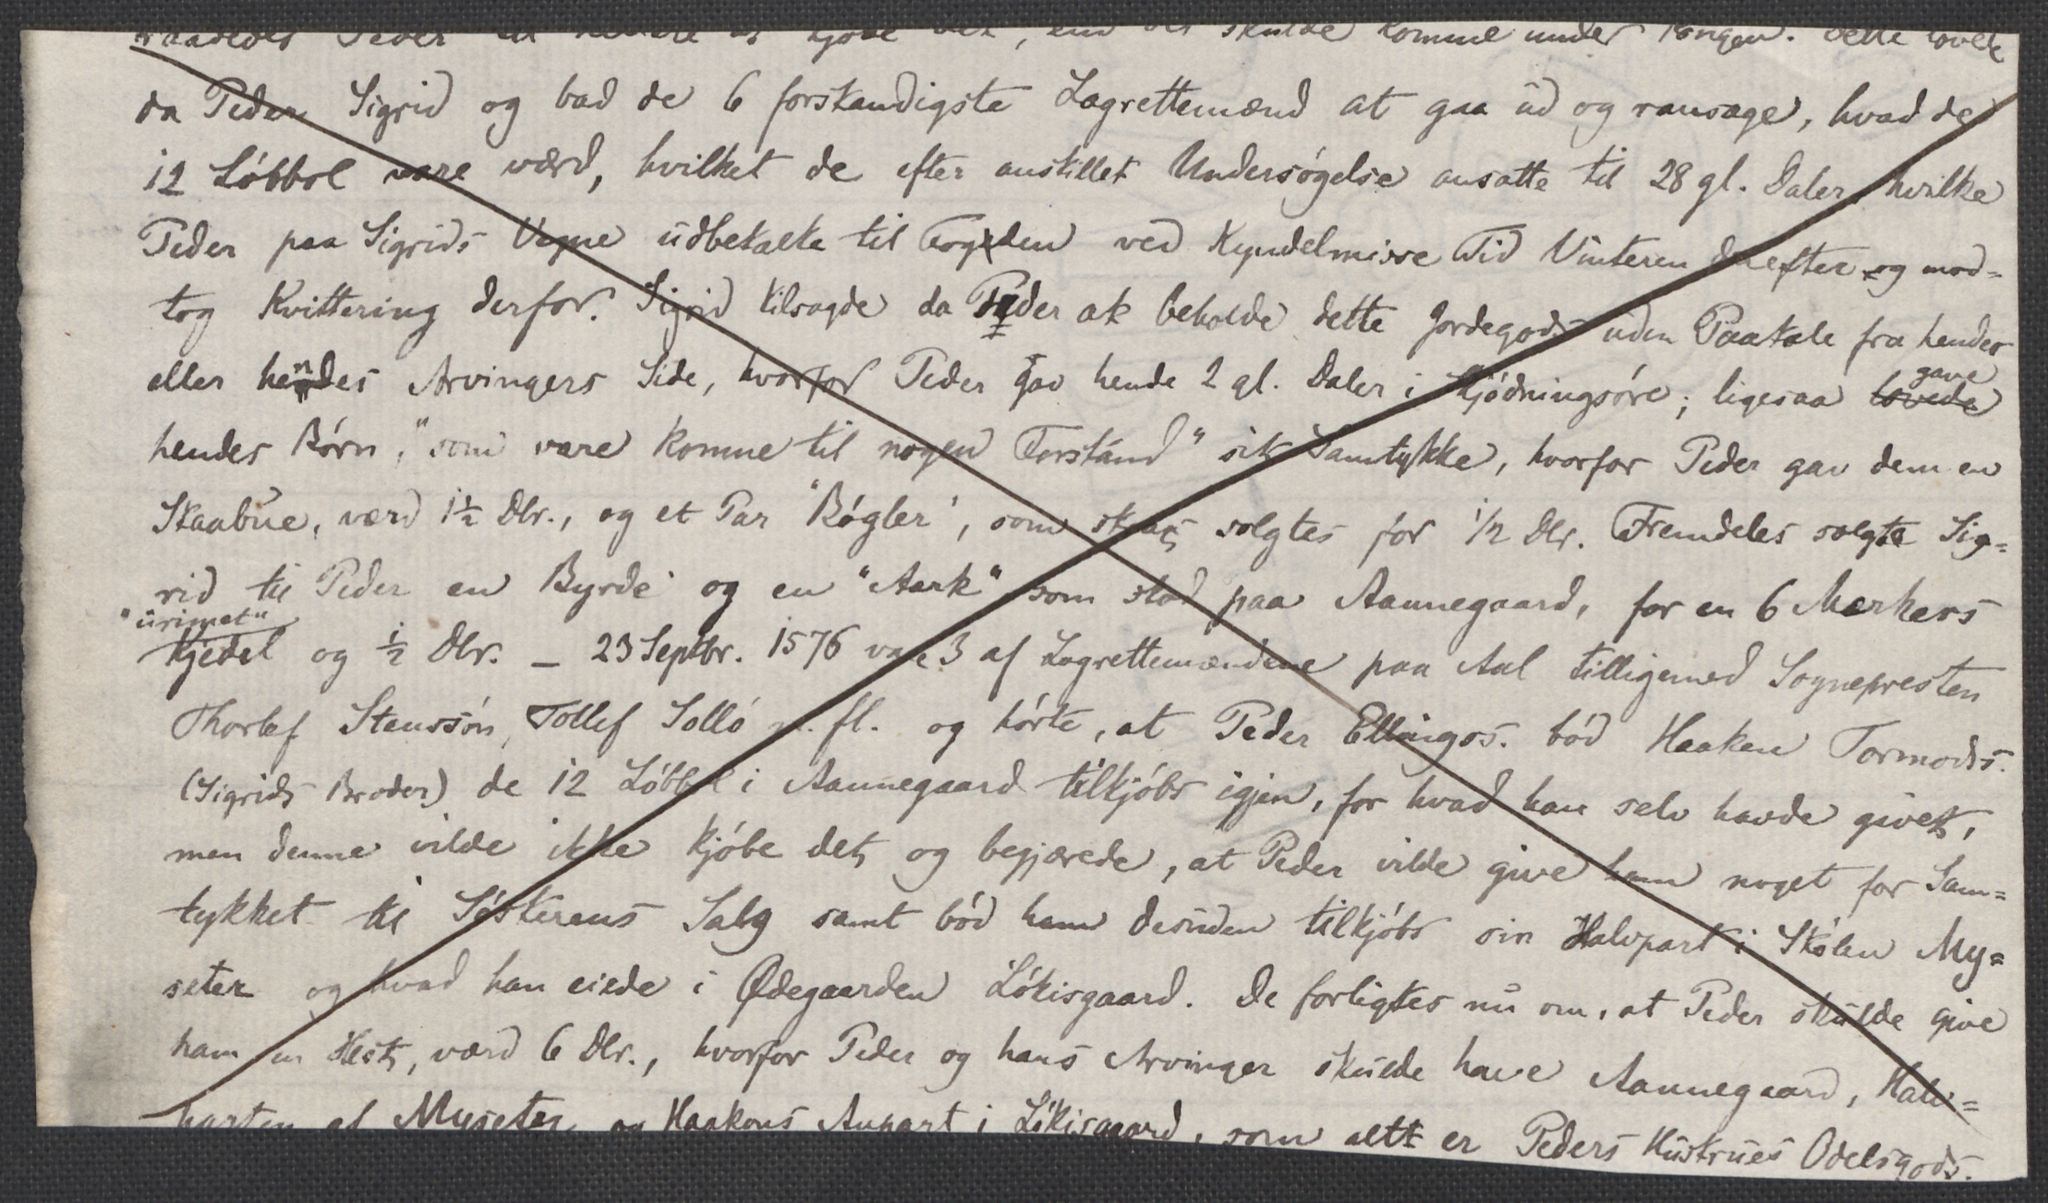 raadede Peder til hellere at kjøbe det, end det skulde komme under Kongen. Dette lovede
da Peder Sigrid og bad de 6 forstandigste Lagrettemænd at gaa ud og ransage, hvad de
12 Løbbol vare værd, hvilket de efter anstillet Undersøgelse ansatte til 28 gl. Daler, hvilke
Peder paa Sigrids Vegne udbetalte til Fogden ved Kyndelmisse Tid Vinteren derefter og mod=
tog Kvittering derfor. Sigrid tilsagde da Peder at beholde dette Jordegods uden Paatale fra hendes
eller hendes Arvingers Side, hvorfor Peder gav hende 2 gl. Daler i Skjødningsøre; ligesaa lovede gave
hendes Børn, "som vare komne til nogen Forstand" sit Samtykke, hvorfor Peder gav dem en
Skaabue, værd 1½ Dlr., og et Par "Bøgler", som strax solgtes for 1/2 Dlr. Fremdeles solgte Sig=
rid til Peder en Byrde og en "Aark" som stod paa Aannegaard, for en 6 Merkers
"urimet"
Kjedel og ½ Dlr. – 23 Septbr. 1576 vare 3 af Lagrettemændene paa Aal tilligemed Sognepresten
Thorlef Stenssøn, Tollef Sollo m. fl. og hørte, at Peder Ellingss. bød Haaken Tormodss.
(Sigrids Broder) de 12 Løbbol i Aannegaard tilkjøbs igjen, for hvad han selv havde givet,
men denne vilde ikke kjøbe det, og begjærede, at Peder vilde give ham noget for Sam=
tykket til Søsterens Salg samt bød ham desuden tilkjøbs sin Halvpart i Stølen My=
seter og hvad han eiede i Ødegaarden Løkisgaard. De forligtes nu om, at Peder skulde give
ham en Hest, værd 6 Dlr., hvorfor Peder og hans Arvinger skulde have Aannegaard, Halv=
parten af Myseter og Haakons Anpart i Løkisgaard, som alt er Peders Hustrues Odelsgods.